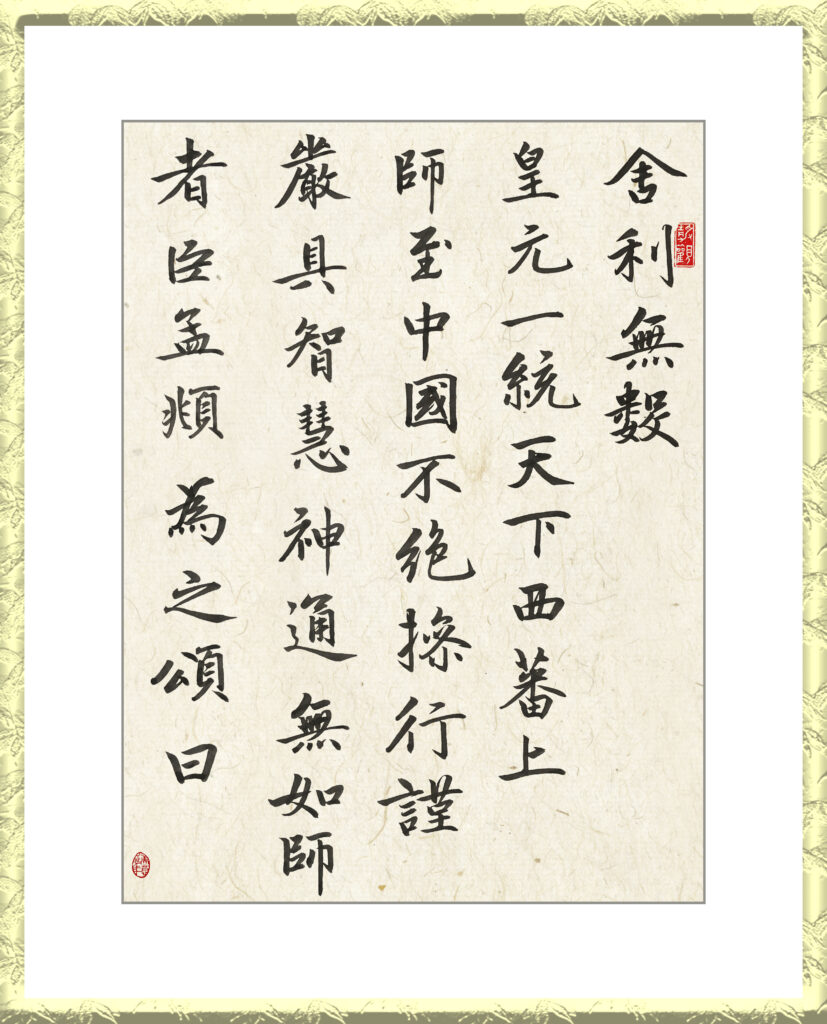 舍利無數
皇元一統天下西蕃上
師至中國不絶操行謹
嚴具智慧神通無如師
者臣孟頫為之頌曰